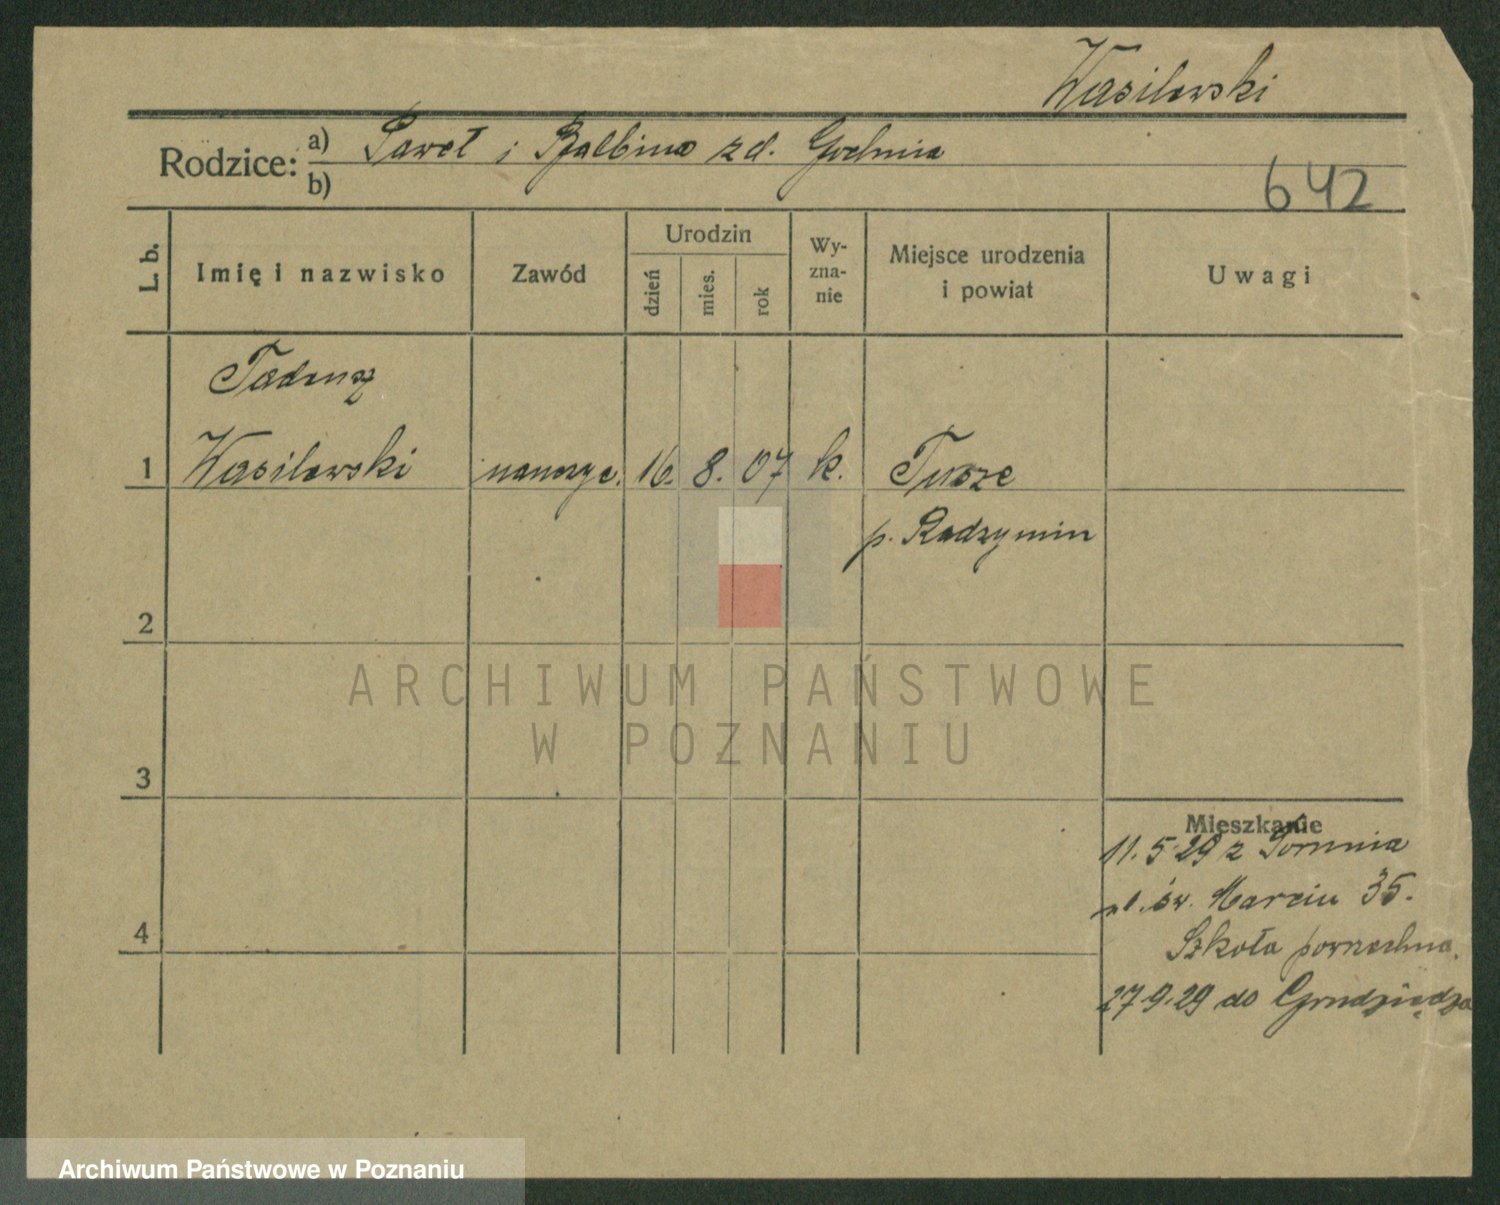 Wasilewski
Rodzice: a) Paweł i Balbina zd.
b)
642
L. b.
Imię i nazwisko
Zawód
Urodzin
dzień
mies.
rok
Wy-
zna-
nie
Miejsce urodzenia
i powiat
Uwagi
Tadeusz
1 Wasilewski nauczyc. 16. 8. 07 k. Tusze
p. Radzymin
2
ARCHIWUM PAŃSTWOWE
W POZNANIU
3
Mieszkanie
11.5.29 z Torunia
ul. św. Marcin 35.
4 Szkoła powszechna.
27.9.29 do Grudziądza
Archiwum Państwowe w Poznaniu